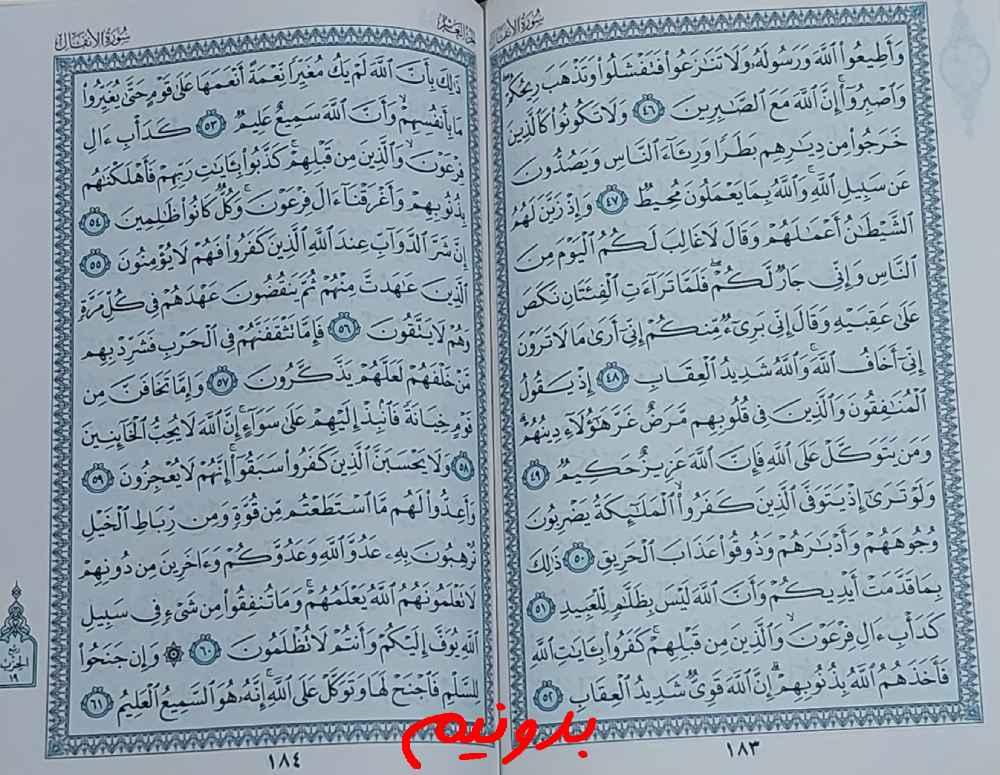 سورة الأنفال
وَأَطِيعُوا۟ ٱللَّهَ وَرَسُولَهُۥ وَلَا تَنَٰزَعُوا۟ فَتَفْشَلُوا۟ وَتَذْهَبَ رِيحُكُمْ
وَٱصْبِرُوٓا۟ إِنَّ ٱللَّهَ مَعَ ٱلصَّٰبِرِينَ ٤٦ وَلَا تَكُونُوا۟ كَٱلَّذِينَ
خَرَجُوا۟ مِن دِيَٰرِهِم بَطَرًا وَرِئَآءَ ٱلنَّاسِ وَيَصُدُّونَ
عَن سَبِيلِ ٱللَّهِ وَٱللَّهُ بِمَا يَعْمَلُونَ مُحِيطٌ ٤٧ وَإِذْ زَيَّنَ لَهُمُ
ٱلشَّيْطَٰنُ أَعْمَٰلَهُمْ وَقَالَ لَا غَالِبَ لَكُمُ ٱلْيَوْمَ مِنَ
ٱلنَّاسِ وَإِنِّى جَارٌ لَّكُمْ فَلَمَّا تَرَآءَتِ ٱلْفِئَتَانِ نَكَصَ
عَلَىٰ عَقِبَيْهِ وَقَالَ إِنِّى بَرِىٓءٌ مِّنكُمْ إِنِّىٓ أَرَىٰ مَا لَا تَرَوْنَ
إِنِّىٓ أَخَافُ ٱللَّهَ وَٱللَّهُ شَدِيدُ ٱلْعِقَابِ ٤٨ إِذْ يَقُولُ
ٱلْمُنَٰفِقُونَ وَٱلَّذِينَ فِى قُلُوبِهِم مَّرَضٌ غَرَّ هَٰٓؤُلَآءِ دِينُهُمْ
وَمَن يَتَوَكَّلْ عَلَى ٱللَّهِ فَإِنَّ ٱللَّهَ عَزِيزٌ حَكِيمٌ ٤٩
وَلَوْ تَرَىٰٓ إِذْ يَتَوَفَّى ٱلَّذِينَ كَفَرُوا۟ ٱلْمَلَٰٓئِكَةُ يَضْرِبُونَ
وُجُوهَهُمْ وَأَدْبَٰرَهُمْ وَذُوقُوا۟ عَذَابَ ٱلْحَرِيقِ ٥٠ ذَٰلِكَ
بِمَا قَدَّمَتْ أَيْدِيكُمْ وَأَنَّ ٱللَّهَ لَيْسَ بِظَلَّٰمٍ لِّلْعَبِيدِ ٥١
كَدَأْبِ ءَالِ فِرْعَوْنَ وَٱلَّذِينَ مِن قَبْلِهِمْ كَفَرُوا۟ بِـَٔايَٰتِ ٱللَّهِ
فَأَخَذَهُمُ ٱللَّهُ بِذُنُوبِهِمْ إِنَّ ٱللَّهَ قَوِىٌّ شَدِيدُ ٱلْعِقَابِ ٥٢
١٨٣
سورة الأنفال
ذَٰلِكَ بِأَنَّ ٱللَّهَ لَمْ يَكُ مُغَيِّرًا نِّعْمَةً أَنْعَمَهَا عَلَىٰ قَوْمٍ حَتَّىٰ يُغَيِّرُوا۟
مَا بِأَنفُسِهِمْ وَأَنَّ ٱللَّهَ سَمِيعٌ عَلِيمٌ ٥٣ كَدَأْبِ ءَالِ
فِرْعَوْنَ وَٱلَّذِينَ مِن قَبْلِهِمْ كَذَّبُوا۟ بِـَٔايَٰتِ رَبِّهِمْ فَأَهْلَكْنَٰهُم
بِذُنُوبِهِمْ وَأَغْرَقْنَآ ءَالَ فِرْعَوْنَ وَكُلٌّ كَانُوا۟ ظَٰلِمِينَ ٥٤
إِنَّ شَرَّ ٱلدَّوَآبِّ عِندَ ٱللَّهِ ٱلَّذِينَ كَفَرُوا۟ فَهُمْ لَا يُؤْمِنُونَ ٥٥
ٱلَّذِينَ عَٰهَدتَّ مِنْهُمْ ثُمَّ يَنقُضُونَ عَهْدَهُمْ فِى كُلِّ مَرَّةٍ
وَهُمْ لَا يَتَّقُونَ ٥٦ فَإِمَّا تَثْقَفَنَّهُمْ فِى ٱلْحَرْبِ فَشَرِّدْ بِهِم
مَّنْ خَلْفَهُمْ لَعَلَّهُمْ يَذَّكَّرُونَ ٥٧ وَإِمَّا تَخَافَنَّ مِن
قَوْمٍ خِيَانَةً فَٱنۢبِذْ إِلَيْهِمْ عَلَىٰ سَوَآءٍ إِنَّ ٱللَّهَ لَا يُحِبُّ ٱلْخَآئِنِينَ
٥٨ وَلَا يَحْسَبَنَّ ٱلَّذِينَ كَفَرُوا۟ سَبَقُوٓا۟ إِنَّهُمْ لَا يُعْجِزُونَ ٥٩
وَأَعِدُّوا۟ لَهُم مَّا ٱسْتَطَعْتُم مِّن قُوَّةٍ وَمِن رِّبَاطِ ٱلْخَيْلِ
تُرْهِبُونَ بِهِۦ عَدُوَّ ٱللَّهِ وَعَدُوَّكُمْ وَءَاخَرِينَ مِن دُونِهِمْ
لَا تَعْلَمُونَهُمُ ٱللَّهُ يَعْلَمُهُمْ وَمَا تُنفِقُوا۟ مِن شَىْءٍ فِى سَبِيلِ
ٱللَّهِ يُوَفَّ إِلَيْكُمْ وَأَنتُمْ لَا تُظْلَمُونَ ٦٠ ۞ وَإِن جَنَحُوا۟
لِلسَّلْمِ فَٱجْنَحْ لَهَا وَتَوَكَّلْ عَلَى ٱللَّهِ إِنَّهُۥ هُوَ ٱلسَّمِيعُ ٱلْعَلِيمُ ٦١
ربع
الحزب
١٩
١٨٤
بدونیم